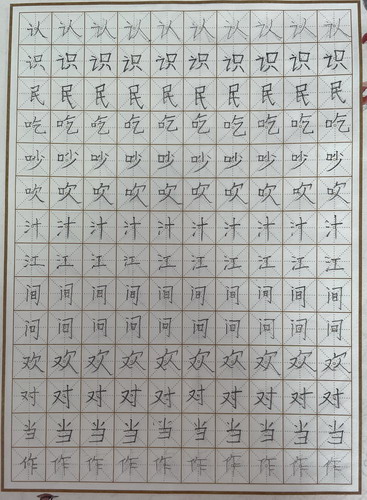 认认认认认认认认认认
识识识识识识识识识识
民民民民民民民民民民
吃吃吃吃吃吃吃吃吃吃
吵吵吵吵吵吵吵吵吵吵
吹吹吹吹吹吹吹吹吹吹
汁汁汁汁汁汁汁汁汁汁
江江江江江江江江江江
间间间间间间间间间间
问问问问问问问问问问
欢欢欢欢欢欢欢欢欢欢
对对对对对对对对对对
当当当当当当当当当当
作作作作作作作作作作